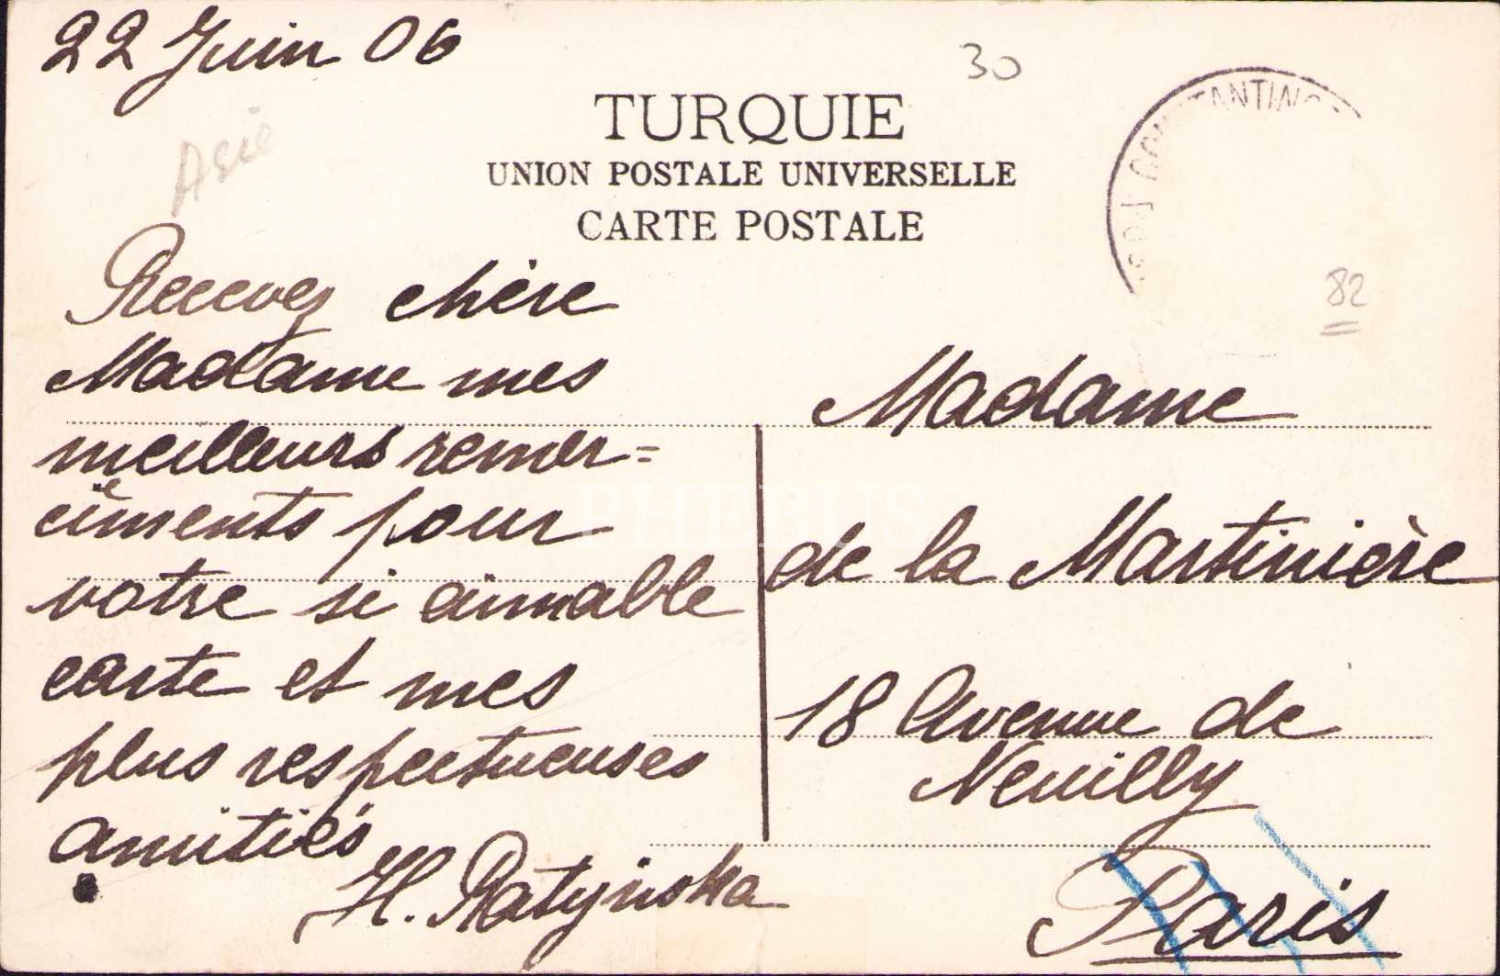 22 Juin 06
30
Asie
TURQUIE
UNION POSTALE UNIVERSELLE
CARTE POSTALE
82
Recevez chère
Madame mes
meilleurs remer=
cîments pour
votre si aimable
carte et mes
plus respectueuses
amitiés
H. Ratyńska
Madame
de la Martinière
18 Avenue de
Neuilly
Paris
PHEBUS